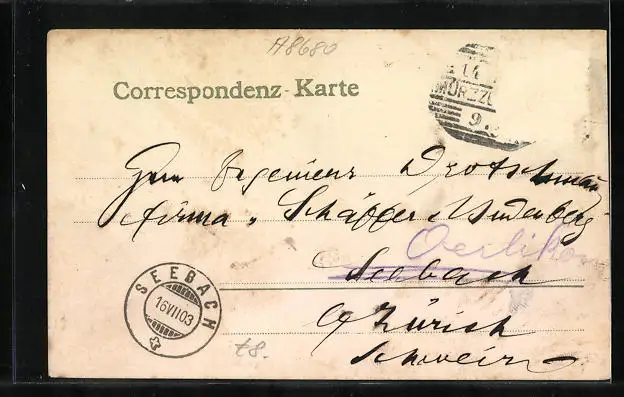 A8680
Correspondenz-Karte
14
MÜRZZ
9.
Herrn Ingenieur Drotschmann
Firma Schäffer & Budenberg
Oerlikon
Seebach
b/ Zürich
Schweiz
SEEBACH
16 VII 03
t8.